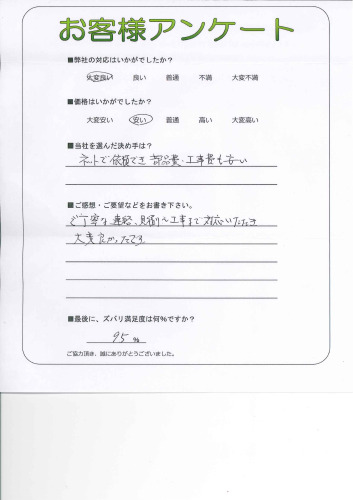 お客様アンケート
■弊社の対応はいかがでしたか？
大変良い 良い 普通 不満 大変不満
■価格はいかがでしたか？
大変安い 安い 普通 高い 大変高い
■当社を選んだ決め手は？
ネットで依頼でき 部品費・工事費も安い
■ご感想・ご要望などをお書き下さい。
ご丁寧な連絡、見積り〜工事まで対応いただき
大変良かったです
■最後に、ズバリ満足度は何％ですか？
95 %
ご協力頂き、誠にありがとうございました。